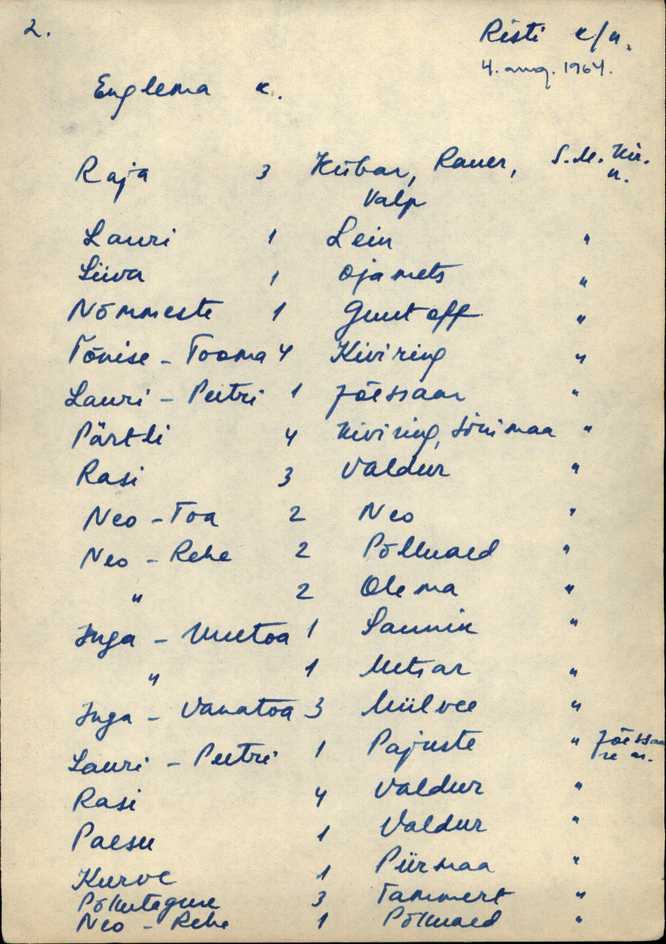 2.
Risti k/n.
4. aug. 1964.
Englema k.
Raja 3 Kübar, Rauer, S.M. Kir.
Valp n.
Lauri 1 Lein "
Liiva 1 Ojamets "
Nõmmeste 1 Guutoff "
Tõnise - Tooma 4 Kiviring "
Lauri - Peetri 1 Jõessaar "
Pärtli 4 Kiviring, Sõrimaa "
Rasi 3 Valdur "
Neo - Toa 2 Neo "
Neo - Rehe 2 Põlluaed "
" 2 Olema "
Inga - Uuetoa 1 Saunin "
" 1 Metsar "
Inga - Vanatoa 3 Müilvee "
Lauri - Peetri 1 Pajuste " Jõessaa
Rasi 4 Valdur "
Paesu 1 Valdur "
Kurve 1 Piirmaa "
3 Tammert "
Neo - Rehe 1 Põlluaed "